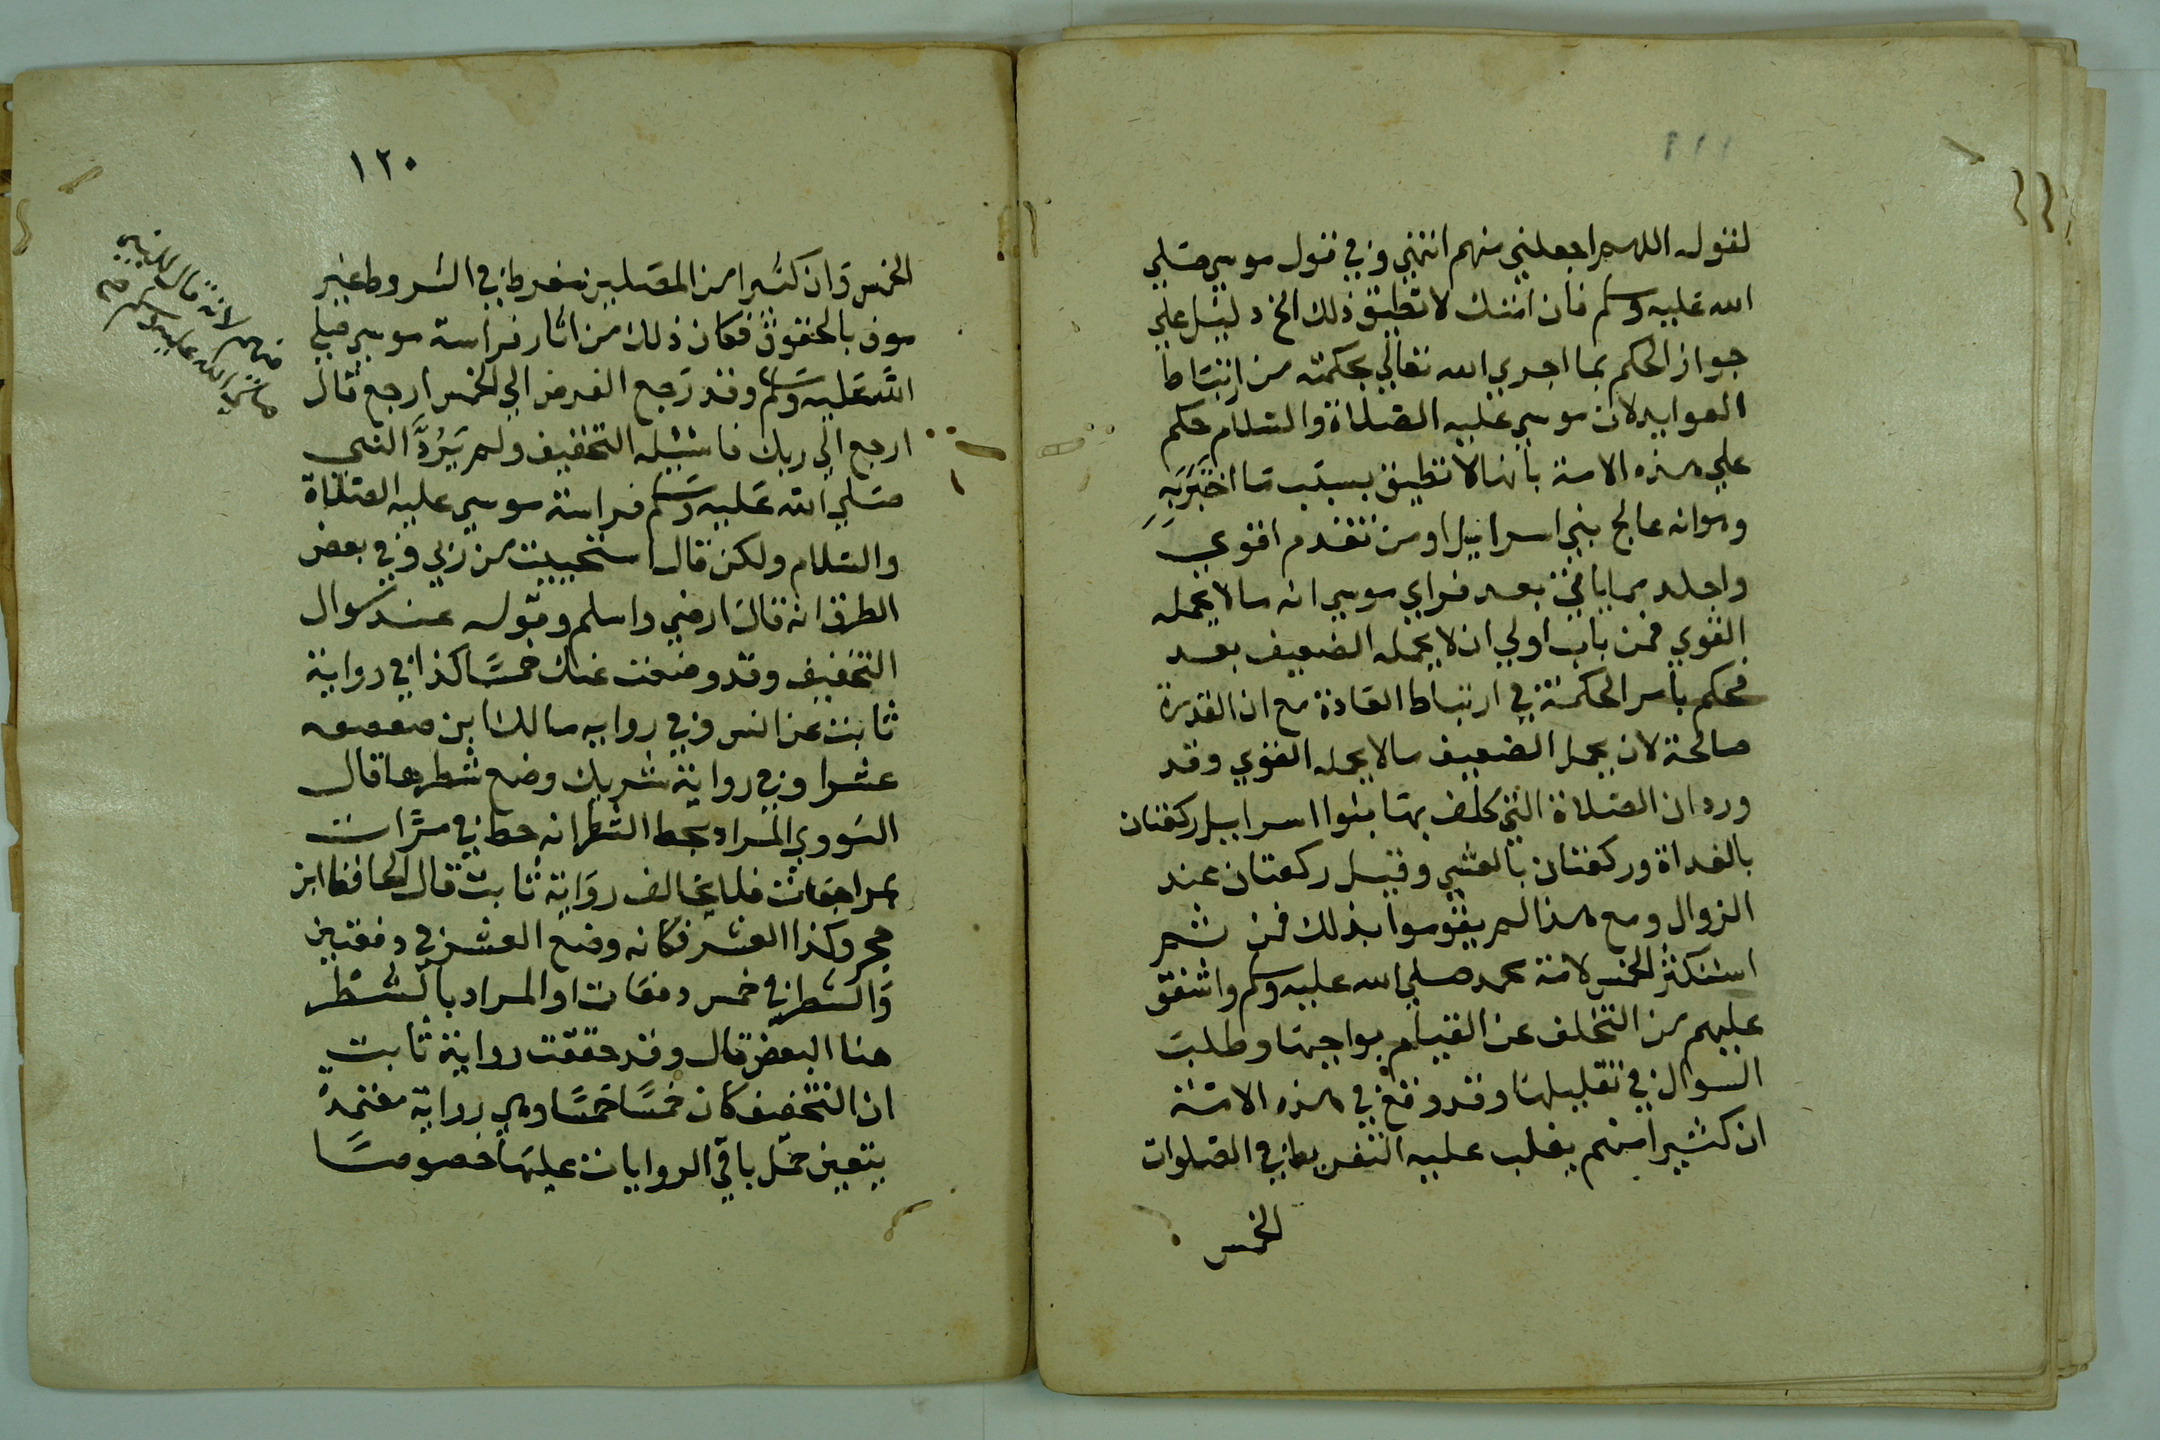 لقوله اللهم اجعلني منهم انتهي وفي قول موسي صلي
الله عليه وسلم فان امتك لا تطيق ذلك الخ دليل علي
جواز الحكم بما اجري الله تعالي بحكمته من ارتباط
العوايد لان موسي عليه الصلاة والسلام حكم
علي هذه الامة بانها لا تطيق بسبب ما اختبر به
وهو انه عالج بني اسرائيل ومن تقدم اقوي
واجلد ممن ياتي بعد فراي موسي انه ما لا يحمله
القوي فمن باب اولي ان لا يحمله الضعيف بعد
فحكم باسر الحكمة في ارتباط العادة مع ان القدرة
صالحة لان يحمل الضعيف ما لا يحمله القوي وقد
ورد ان الصلاة التي كلف بها بنوا اسراييل ركعتان
بالغداة وركعتان بالعشي وقيل ركعتان عند
الزوال ومع هذا لم يقوموا بذلك فمن ثم
استكثر الخمس لامة محمد صلي الله عليه وسلم واشفق
عليهم من التخلف عن القيام بواجبها وطلب
السوال في تقليلها وقد وقع في هذه الامة
ان كثيرا منهم يغلب عليه التفريط في الصلوات
الخمس
١٢٠
الخمس وان كثيرا من المصلين مفرط في الشروط غير
موف بالحقوق فكان ذلك من اثار فراسة موسي صلي
الله عليه وسلم وقد رجع الفرض الي الخمس ارجع قال
ارجع الي ربك فاسئله التخفيف ولم يَرُدَّ النبي
صلي الله عليه وسلم فراسة موسي عليه الصلاة
والسلام ولكن قال استحييت من ربي وفي بعض
الطرق انه قال ارضي واسلم وقوله عند سوال
التخفيف وقد وضعت عنك خمسًا كذا في رواية
ثابت عن انس وفي روايه مالك ابن صعصعه
عشرا وفي رواية شريك وضع شطرها قال
النووي المراد بحط الشطر انه حط في مرات
بمراجعات فلا يخالف رواية ثابت قال الحافظ ابن
حجر وكذا العشر فكانه وضع العشر في دفعتين
والشطر في خمس دفعات او المراد بالشطر
هنا البعض قال وقد حققت رواية ثابت
ان التخفيف كان خمسًا خمسًا وهي رواية معتمدة
يتعين حمل باقي الروايات عليها خصوصًا